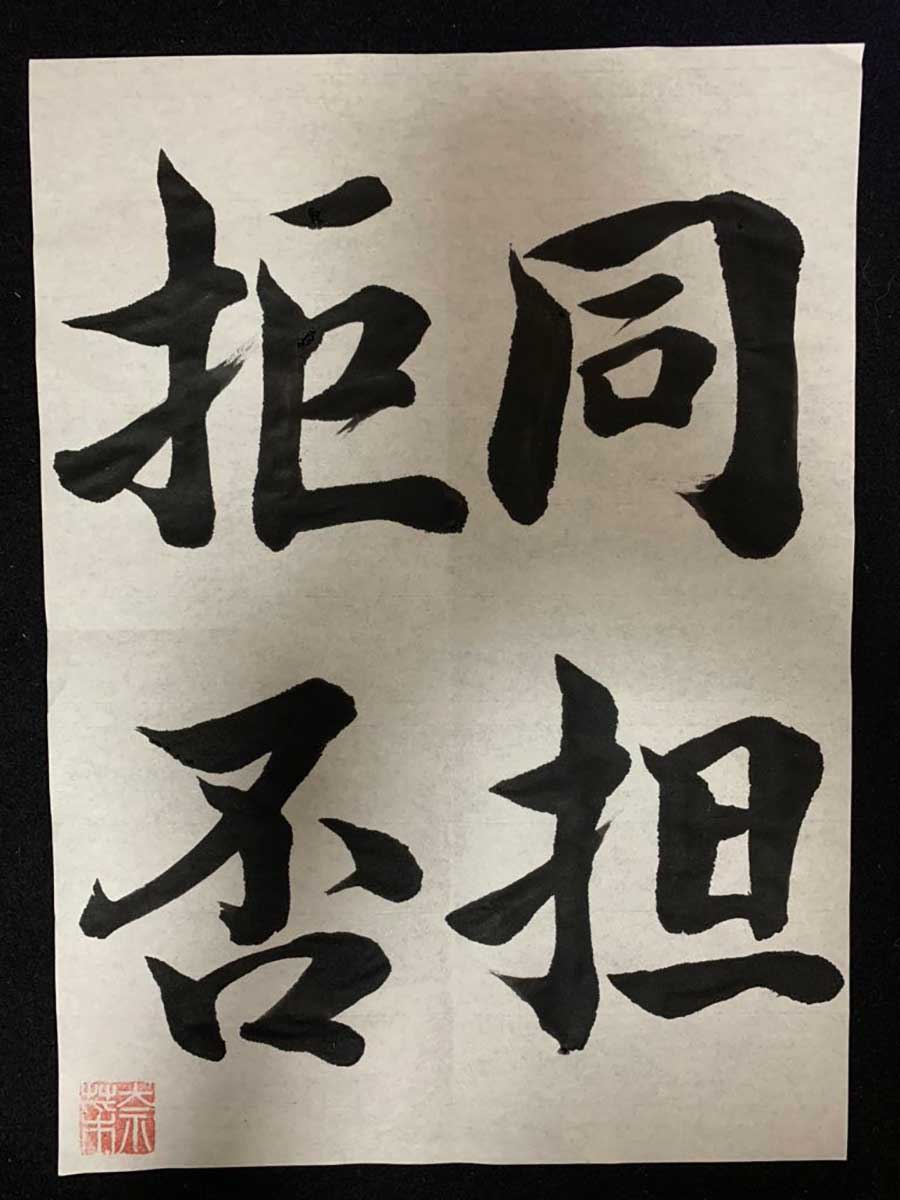 同担
拒否